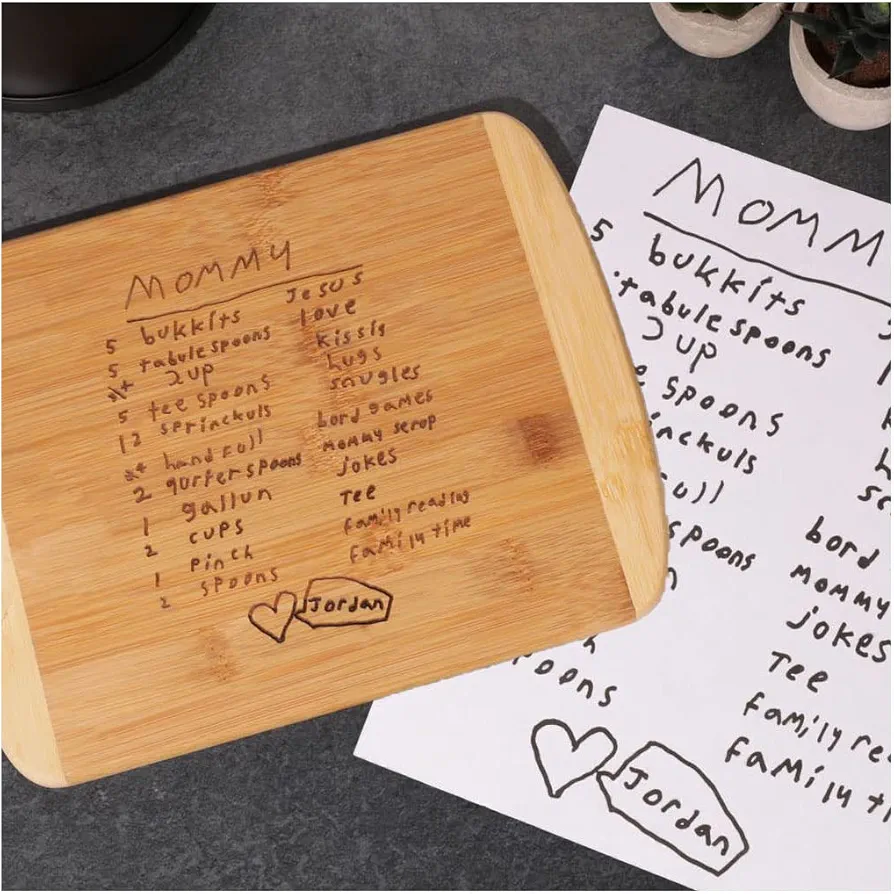 MOMMY
5 bukkits Jesus
5 tabule spoons love
2 up kissis
5 tee spoons hugs
12 sprinckuls snugles
hand full bord games
2 qurter spoons mommy scrop
1 gallun jokes
2 cups Tee
1 pinch family reading
2 spoons family time
Jordan
MOMM
5 bukkits
tabule spoons
2 up
e spoons
inckuls
ull bord
spoons mommy
jokes
Tee
family re
poons family ti
Jordan